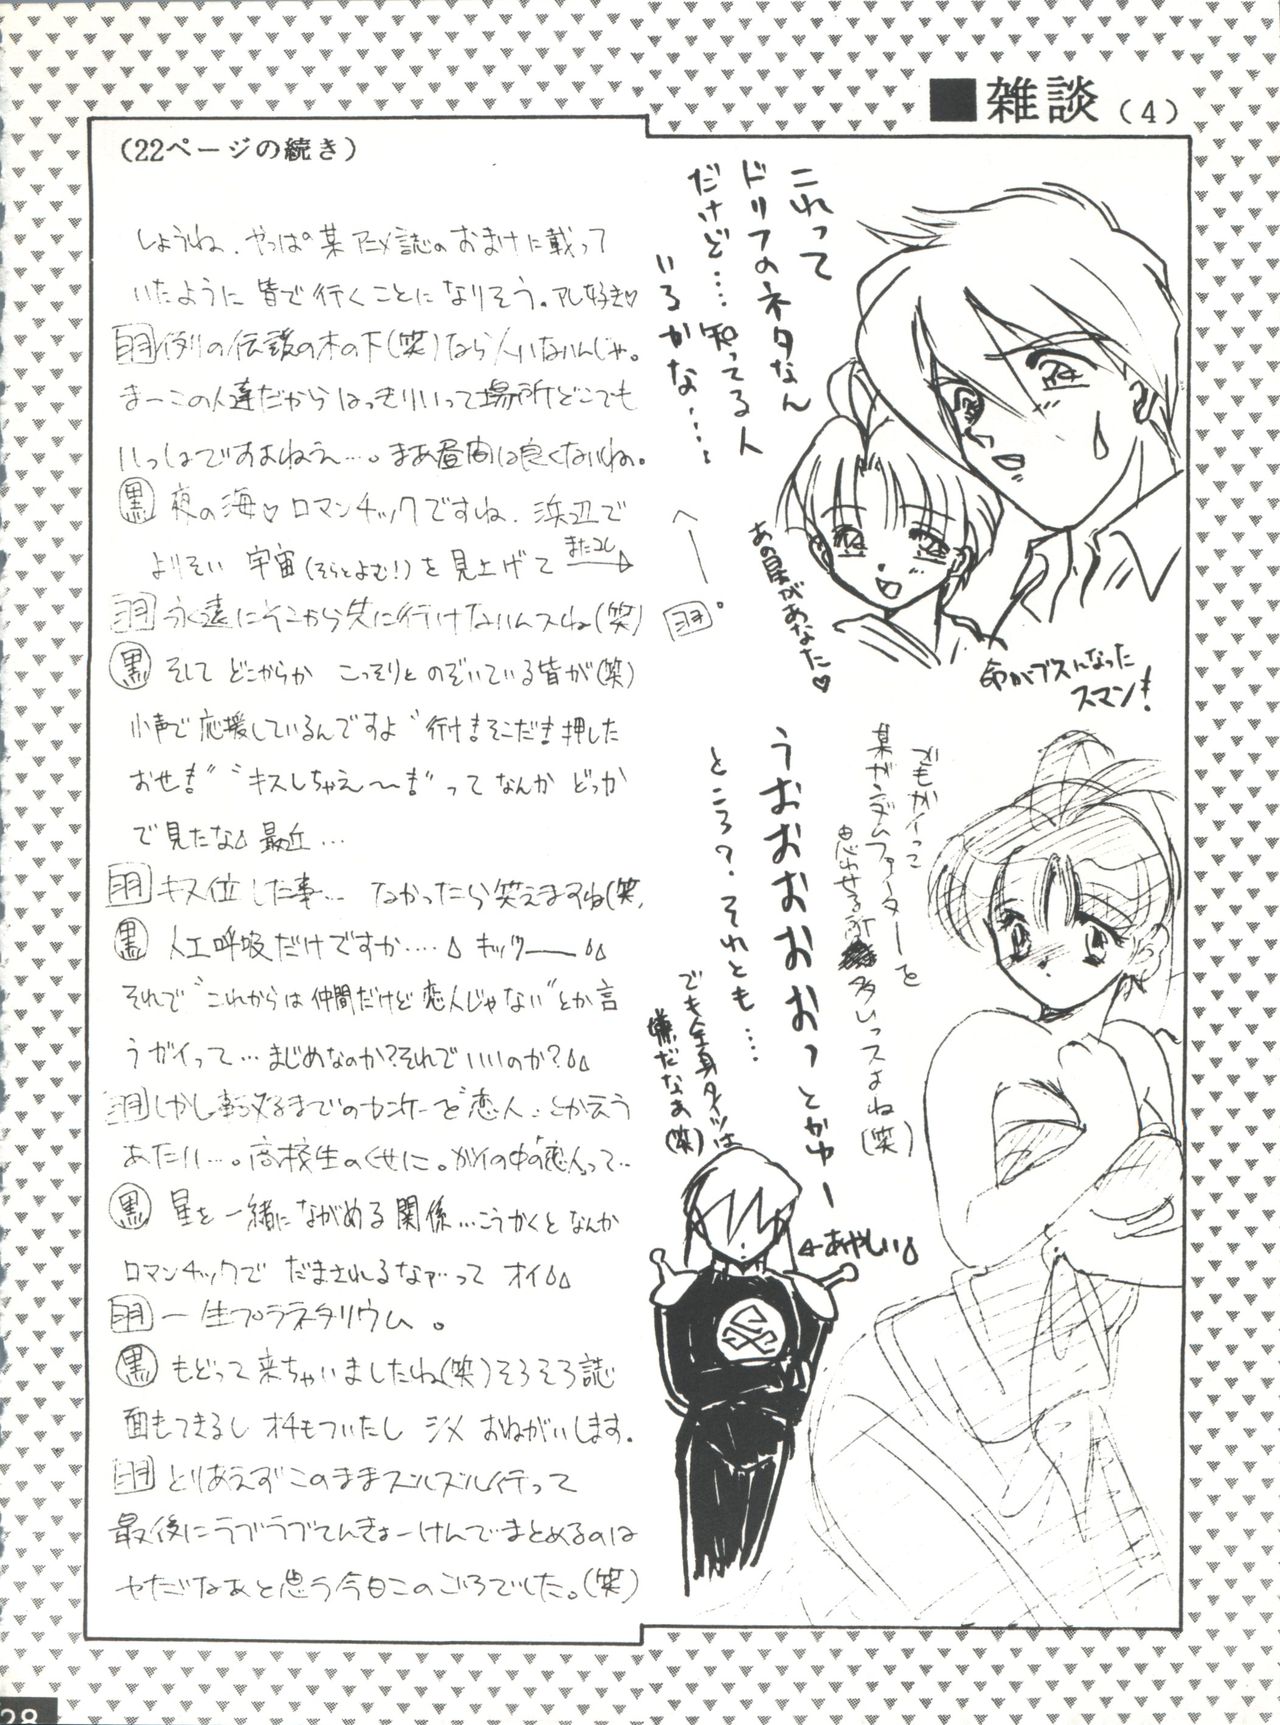 ■雑談(4)
(22ページの続き)
しょうね、やっぱ某アニメ誌のおまけに載って
いたように皆で行くことになりそう。アレ好き♡
羽 例の伝説の木の下(笑)ならいいんじゃ。
まーこの人達だからはっきりいって場所どこでも
いっしょですよねえ…。まあ昼間は良くないね。
黒 夜の海♡ロマンチックですね、浜辺で
よりそい 宇宙(そらとよむ!)を見上げて またコレ→
羽 永遠にそこから先に行けないんスね(笑)
黒 そして どこからか こっそりと のぞいている皆が(笑)
小声で応援しているんですよ“行け!そこだ!押した
おせ!”“キスしちゃえ〜!”って なんか どっか
で見たな 最近…
羽 キス位した事… なかったら笑えますね(笑)
黒 人工呼吸だけですか…. キッツー
それで“これからは仲間だけど恋人じゃない”とか言
うガイって…まじめなのか?それでいいのか?
羽 しかし転校するまでのカンケーを“恋人”とか云う
あたり…。高校生のくせに。ガイの中の“恋人”って…
黒 星を一緒にながめる関係…こうかくと なんか
ロマンチックで だまされるなァ…って オイ
羽 一生プラネタリウム。
黒 もどって来ちゃいましたね(笑)そろそろ誌
面もつきるし オチもついたし シメ おねがいします。
羽 とりあえずこのままズルズル行って
最後にラブラブてんきょーけんでまとめるのは
ヤだなあと思う今日このごろでした。(笑)
これって
ドリフのネタなん
だけど….知ってる人
いるかな…..
へ
羽
あの星があなた♡
命がブスんなった
スマン!
でもガイって
某ガンダムファイターを
思わせる所多いっスよね(笑)
うおおおおおっとかゆー
ところ?それとも…
でも全身タイツは
嫌だなぁ(笑)
←あやしい
28